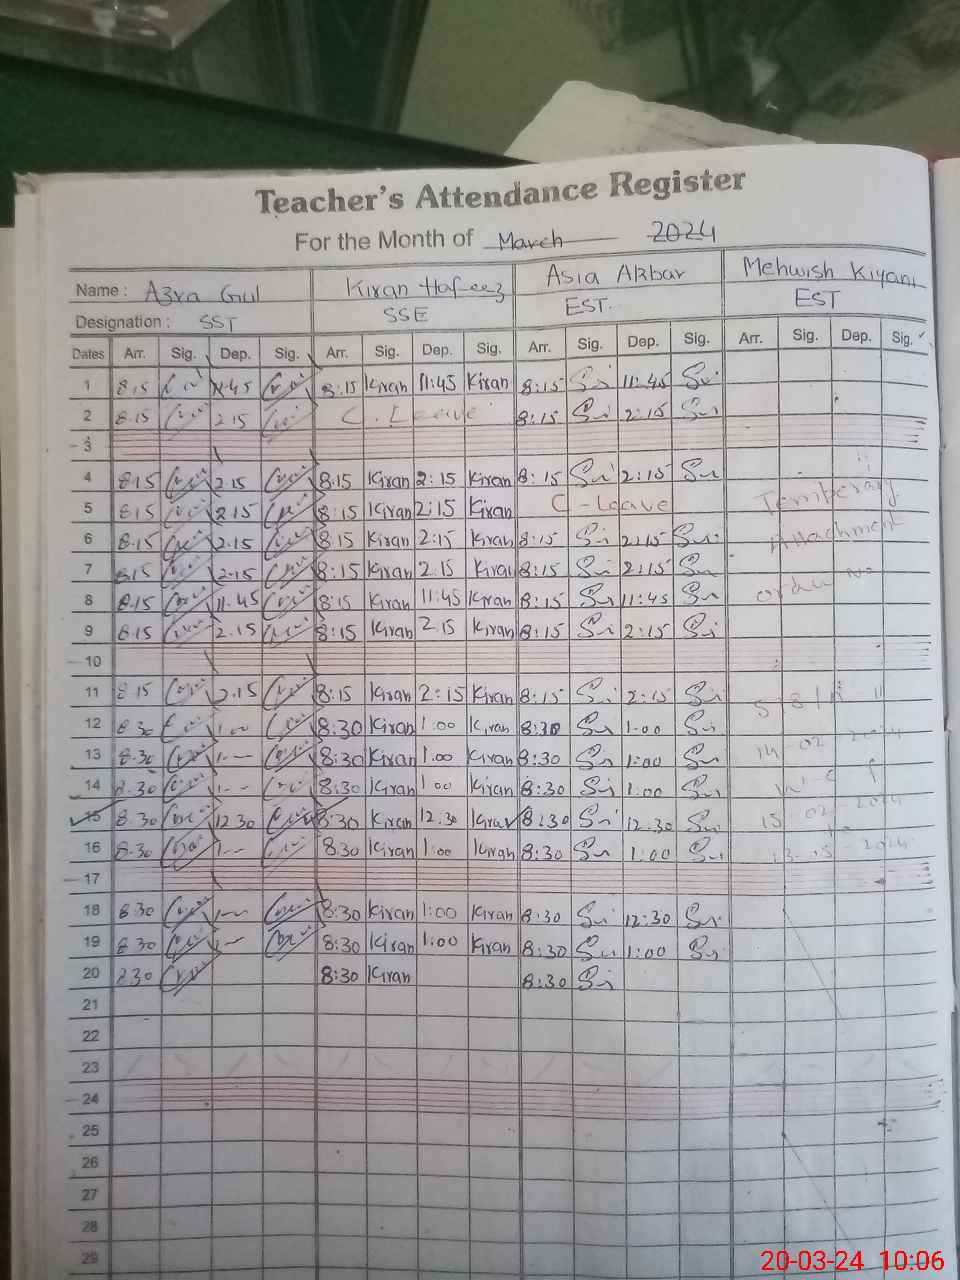 Teacher's Attendance Register
For the Month of March 2024
Name : Azra Gul Kiran Hafeez Asia Akbar Mehwish Kiyani
Designation : SST SSE EST. EST
Dates Arr. Sig. Dep. Sig. Arr. Sig. Dep. Sig. Arr. Sig. Dep. Sig. Arr. Sig. Dep. Sig.
1 8.15 11.45 8:15 Kiran 11:45 Kiran 8:15 11:45
2 8.15 2.15 C. Leave 8:15 2:15
3
4 8.15 2.15 8.15 Kiran 2:15 Kiran 8:15 2:15
5 8.15 2.15 8:15 Kiran 2:15 Kiran C-Leave Temperary
6 8.15 2.15 8:15 Kiran 2:15 Kiran 8:15 2:15 Attachment
7 8.15 2.15 8:15 Kiran 2.15 Kiran 8:15 2:15
8 8.15 11.45 8:15 Kiran 11:45 Kiran 8:15 11:45 order No
9 8.15 2.15 8:15 Kiran 2.15 Kiran 8:15 2:15
10
11 8.15 2.15 8:15 Kiran 2:15 Kiran 8:15 2:15
12 8.30 1.00 8:30 Kiran 1:00 Kiran 8:30 1:00
13 8.30 1.— 8:30 Kiran 1.00 Kiran 8:30 1:00 14-02-2024
14 8.30 1-- 8:30 Kiran 1 00 Kiran 8:30 1:00 w-e-f
15 8.30 12.30 8:30 Kiran 12.30 Kiran 8:30 12:30 15-02-2024
16 8.30 1-- 8.30 Kiran 1:00 Kiran 8:30 1:00
17
18 8.30 1-- 8:30 Kiran 1:00 Kiran 8:30 12:30
19 8.30 1-- 8:30 Kiran 1:00 Kiran 8:30 1:00
20 8.30 8:30 Kiran 8:30
21
22
23
24
25
26
27
28
29
20-03-24 10:06